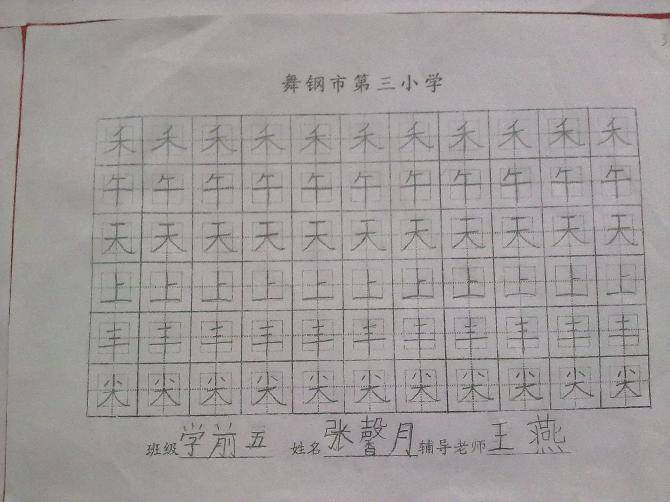 舞钢市第三小学
禾禾禾禾禾禾禾禾禾禾禾
午午午午午午午午午午午
天天天天天天天天天天天
上上上上上上上上上上上
丰丰丰丰丰丰丰丰丰丰丰
尖尖尖尖尖尖尖尖尖尖尖
班级学前五 姓名张馨月 辅导老师王燕